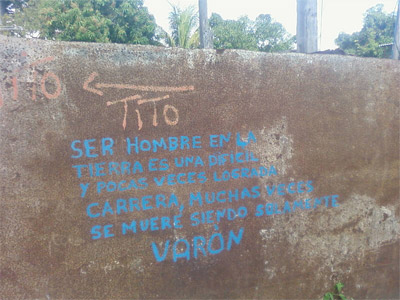 TITO
TITO
SER HOMBRE EN LA
TIERRA ES UNA DIFICIL
Y POCAS VECES LOGRADA
CARRERA, MUCHAS VECES
SE MUERE SIENDO SOLAMENTE
VARÓN